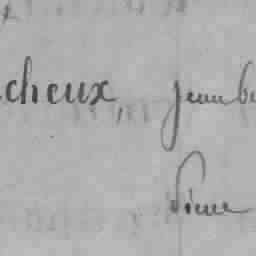 cheux, jean b
Pierre